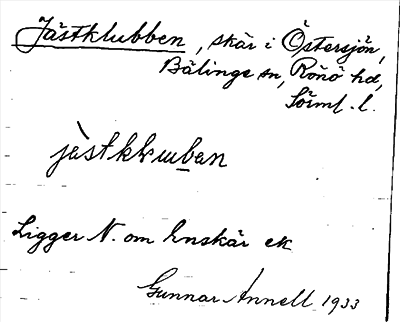 Jästklubben, skär i Östersjön,
Bälinge sn, Rönö hd,
Sörml. l.
Ligger N. om Enskär ek
Gunnar Annell 1933